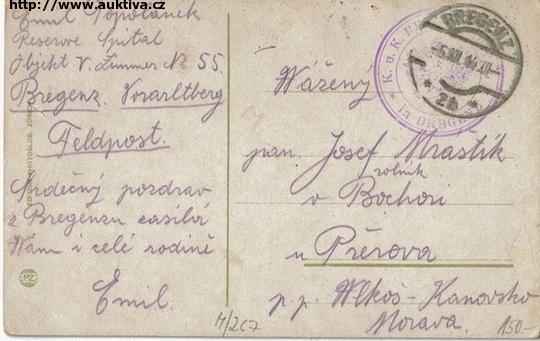 http://www.auktiva.cz
Emil Topolanek
Reserve Spital
Objekt V. Zimmer № 55.
Bregenz. Vorarltberg
Feldpost.
Srdečný pozdrav
z Bregenzu zasílá
Vám i celé rodině
Emil.
Vážený
pan Josef Mrastík
rolník
v Bochoři
u Přerova
p. p. Wlkoš - Kanovsko
Morava.
BREGENZ
2b
K. u. K.
PZ
M/267
150.-